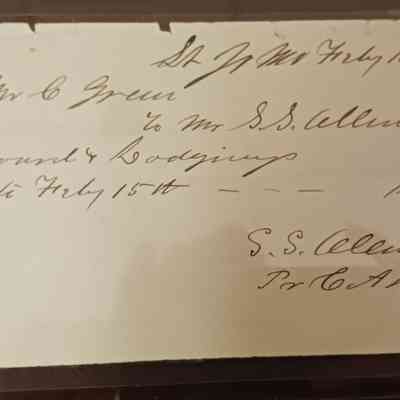 St Jo Mo Feby 1
Mr C Green
To Mr S. S. Allen
oard & Lodgings
to Feby 15th — — — 1
S. S. Allen
Pr C A